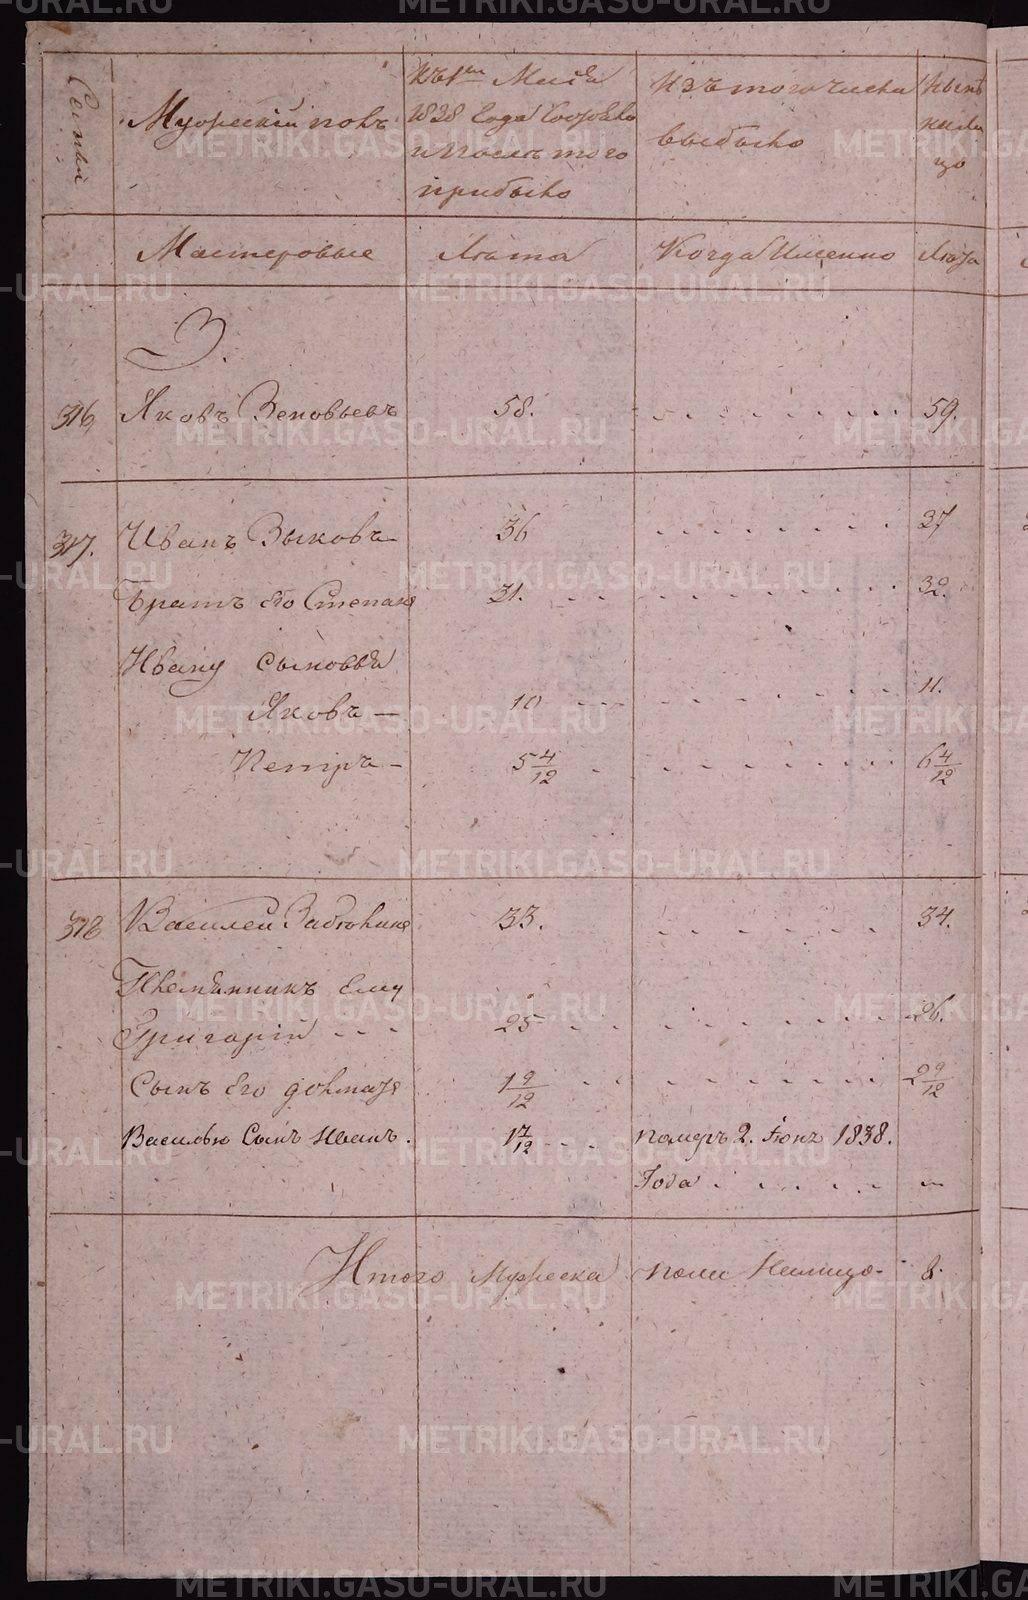 Семьи
Мужеский полъ
Къ 1му Маія
1838 Года Состояло
и после того
прибыло
Изъ того числа
выбыло
Ныне
на ли
цо
Мастеровые
Лета
Когда Именно
Лета
З.
316 Яковъ Зеновьевъ 58. 59.
317. Иванъ Зыковъ 36 37
Братъ его Степанъ 31. 32.
Ивану сыновья
Яковъ — 10 11.
Петръ — 5 4/12 6 4/12
318 Василей Заблокинъ 33. 34.
Племянникъ Ему
Григорій 25 26.
Сынъ Его 1 9/12 2 9/12
Василью Сынъ Иванъ. 1 7/12 померъ 2. Іюнъ 1838.
Года „
Итого Мужеска пола Налицо 8.
METRIKI.GASO-URAL.RU